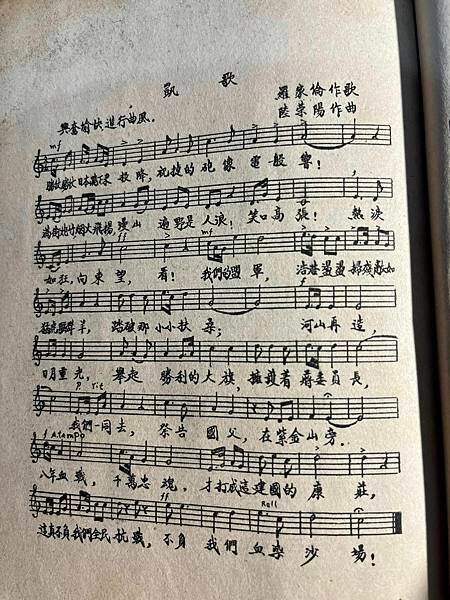 凱歌
羅家倫作歌
陸榮陽作曲
興奮愉快進行曲風.
mf
日本 投降,祝捷的砲像電一般響!
滿街 飛揚,漫山遍野是人浪!笑口高張!熱淚
ff mf
如狂,向東望,看!我們的盟軍,浩浩盪盪
f
羊,踏破那小小扶桑;河山再造,
日月重光,舉起勝利的大旗,擁護着蔣委員長,
P rit
我們一同去,祭告國父,在紫金山旁..
f A.tempo
八年血戰,千萬忠魂,才打成這建國的康莊,
ff Rall
這真不負我們全民抗戰,不負我們血染沙場!